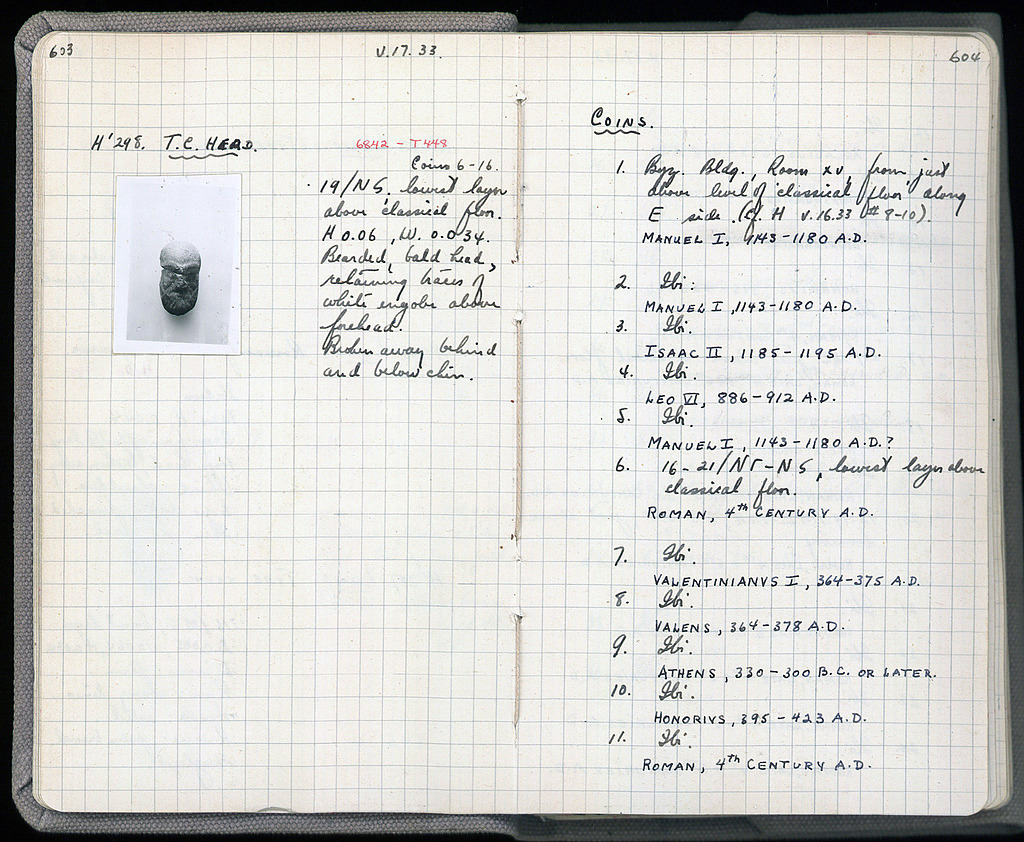 603
V.17.33.
H'298. T.C. HEAD.
6842 - T448
Coins 6-16.
19/ΝΣ, lowest layer
above 'classical floor.
H 0.06, W. 0.034.
Bearded, bald head,
retaining traces of
white engobe above
forehead.
Broken away behind
and below chin.
604
COINS.
1. Byz. Bldg., Room XV, from just
above level of 'classical floor' along
E side. (Cf. H V.16.33 #9-10).
MANUEL I, 1143-1180 A.D.
2. Ibi:
MANUEL I, 1143-1180 A.D.
3. Ibi.
ISAAC II, 1185-1195 A.D.
4. Ibi.
LEO VI, 886-912 A.D.
5. Ibi.
MANUEL I, 1143-1180 A.D.?
6. 16-21/ΝΓ-ΝΣ, lowest layer above
classical floor.
ROMAN, 4th CENTURY A.D.
7. Ibi.
VALENTINIANVS I, 364-375 A.D.
8. Ibi.
VALENS, 364-378 A.D.
9. Ibi.
ATHENS, 330-300 B.C. OR LATER.
10. Ibi.
HONORIVS, 395-423 A.D.
11. Ibi.
ROMAN, 4th CENTURY A.D.